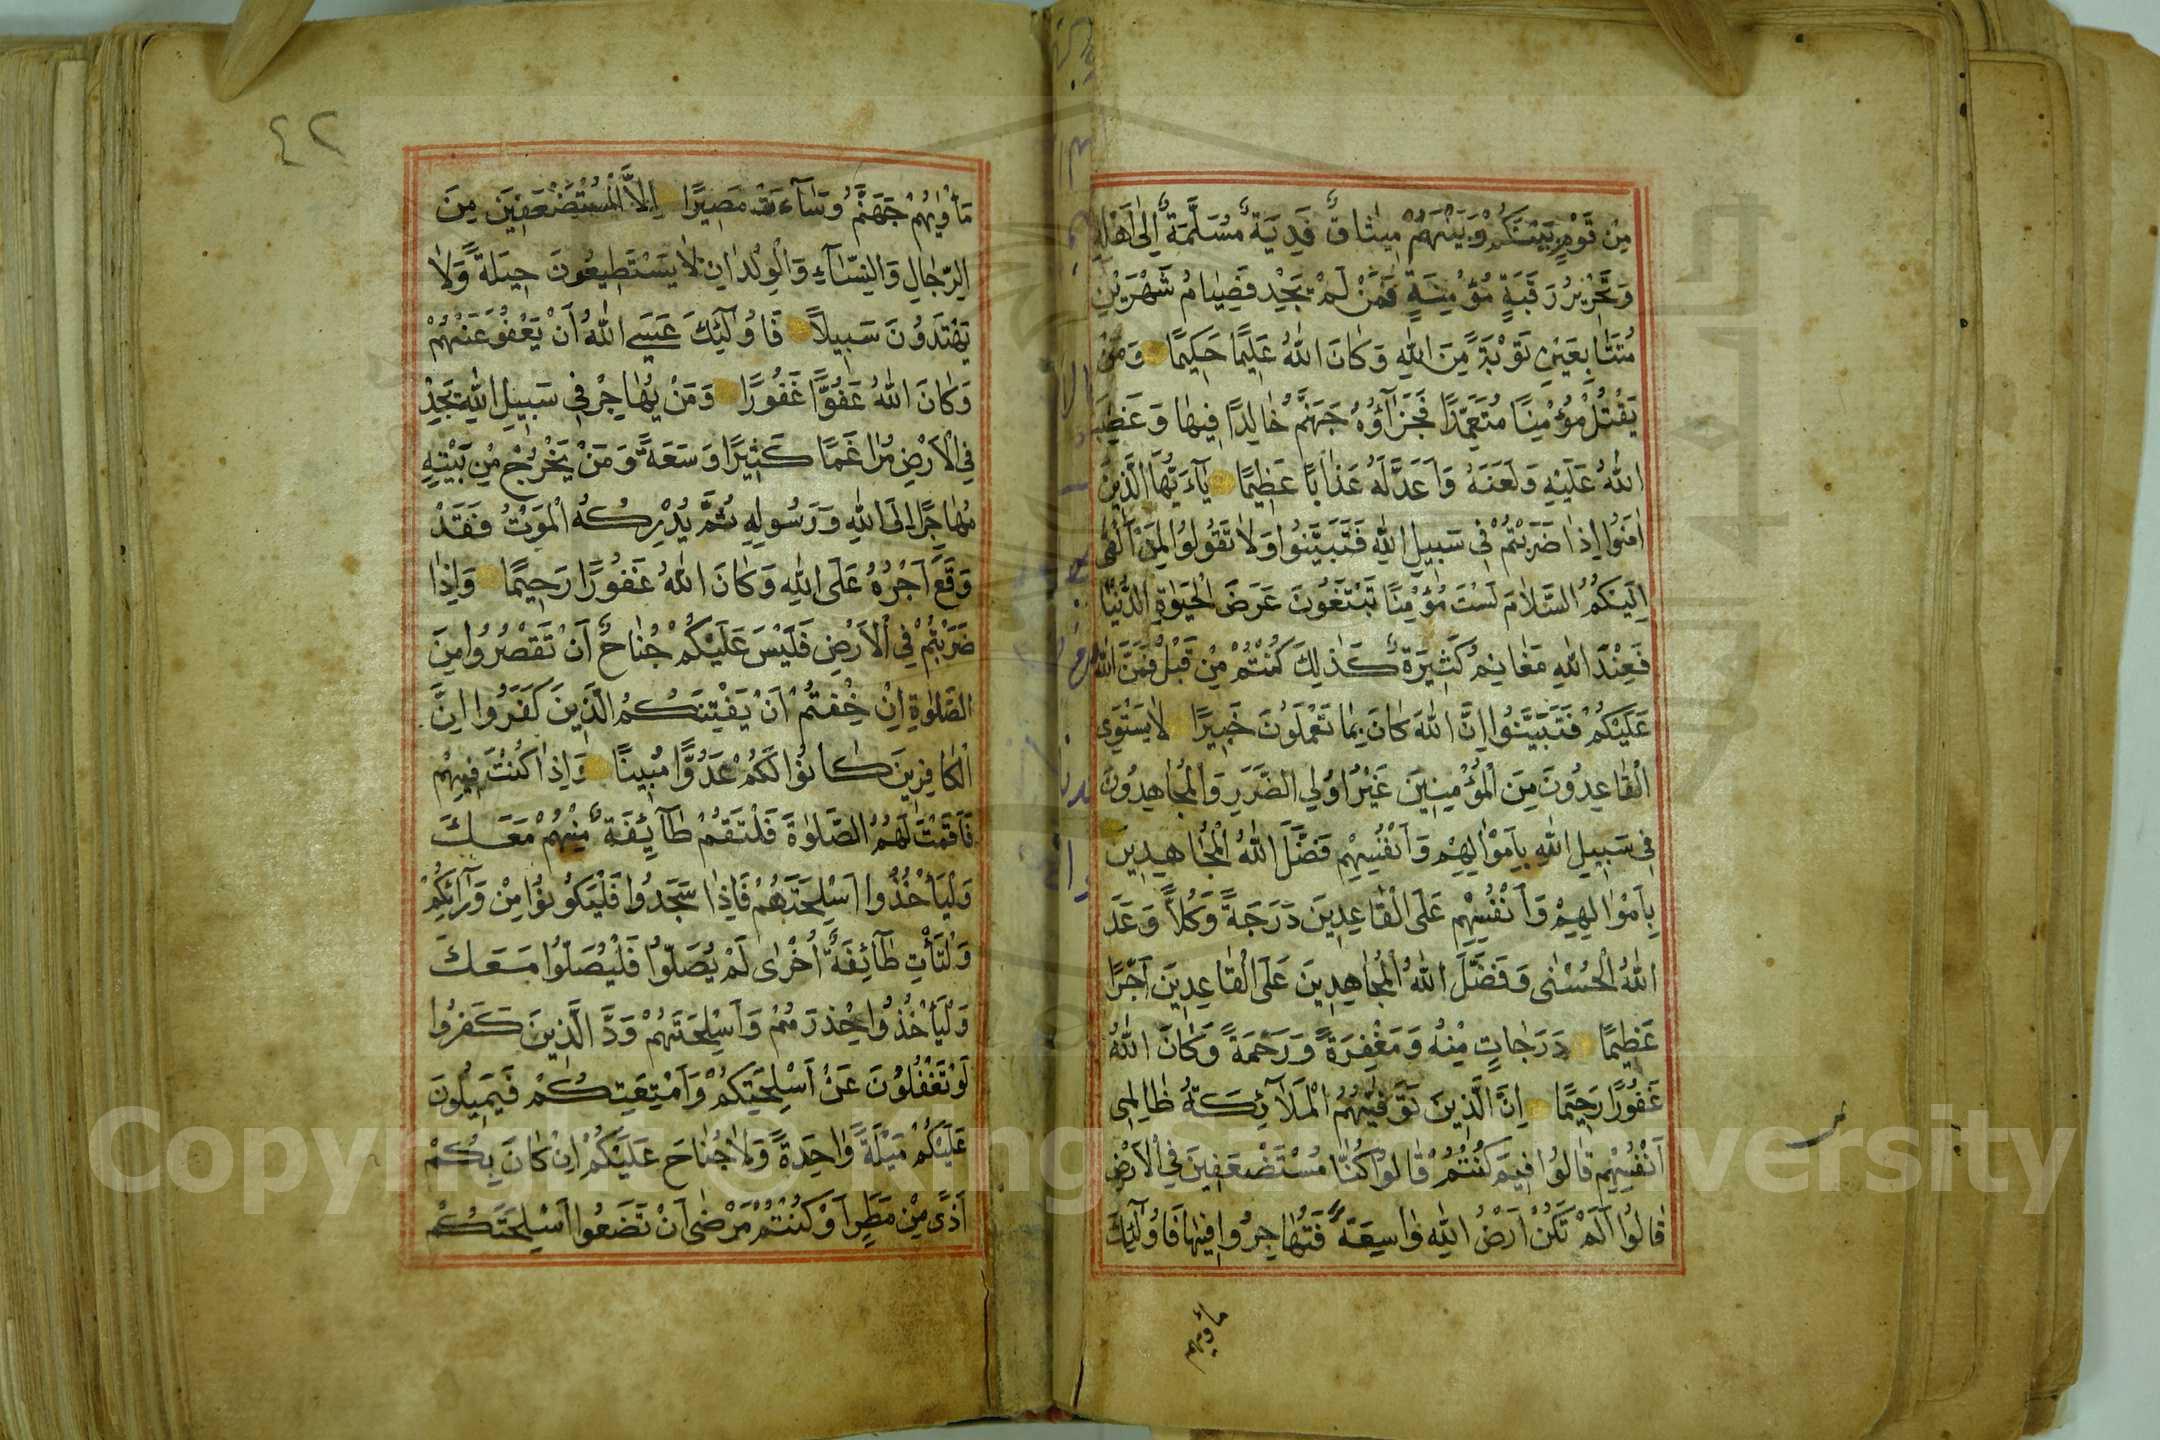 مِنْ قَوْمٍ بَيْنَكُمْ وَبَيْنَهُمْ مِيثَاقٌ فَدِيَةٌ مُسَلَّمَةٌ إِلَىٰ أَهْلِهِ
وَتَحْرِيرُ رَقَبَةٍ مُؤْمِنَةٍ فَمَنْ لَمْ يَجِدْ فَصِيَامُ شَهْرَيْنِ
مُتَتَابِعَيْنِ تَوْبَةً مِنَ اللهِ وَكَانَ اللهُ عَلِيمًا حَكِيمًا وَمَنْ
يَقْتُلْ مُؤْمِنًا مُتَعَمِّدًا فَجَزَآؤُهُ جَهَنَّمُ خَالِدًا فِيهَا وَغَضِبَ
اللهُ عَلَيْهِ وَلَعَنَهُ وَاَعَدَّ لَهُ عَذَابًا عَظِيمًا يَآءَيُّهَا الَّذِينَ
اٰمَنُوا اِذَا ضَرَبْتُمْ فِي سَبِيلِ اللهِ فَتَبَيَّنُوا وَلَا تَقُولُوا لِمَنْ اَلْقٰى
اِلَيْكُمُ السَّلَامَ لَسْتَ مُؤْمِنًا تَبْتَغُونَ عَرَضَ الْحَيٰوةِ الدُّنْيَا
فَعِنْدَ اللهِ مَغَانِمُ كَثِيرَةٌ كَذٰلِكَ كُنْتُمْ مِنْ قَبْلُ فَمَنَّ اللهُ
عَلَيْكُمْ فَتَبَيَّنُوا اِنَّ اللهَ كَانَ بِمَا تَعْمَلُونَ خَبِيرًا لَا يَسْتَوِي
الْقَاعِدُونَ مِنَ الْمُؤْمِنِينَ غَيْرُ اُولِي الضَّرَرِ وَالْمُجَاهِدُونَ
فِي سَبِيلِ اللهِ بِاَمْوَالِهِمْ وَاَنْفُسِهِمْ فَضَّلَ اللهُ الْمُجَاهِدِينَ
بِاَمْوَالِهِمْ وَاَنْفُسِهِمْ عَلَى الْقَاعِدِينَ دَرَجَةً وَكُلًّا وَعَدَ
اللهُ الْحُسْنٰى وَفَضَّلَ اللهُ الْمُجَاهِدِينَ عَلَى الْقَاعِدِينَ اَجْرًا
عَظِيمًا دَرَجَاتٍ مِنْهُ وَمَغْفِرَةً وَرَحْمَةً وَكَانَ اللهُ
غَفُورًا رَحِيمًا اِنَّ الَّذِينَ تَوَفّٰيهُمُ الْمَلَآئِكَةُ ظَالِمِي
اَنْفُسِهِمْ قَالُوا فِيمَ كُنْتُمْ قَالُوا كُنَّا مُسْتَضْعَفِينَ فِي الْاَرْضِ
قَالُوا اَلَمْ تَكُنْ اَرْضُ اللهِ وَاسِعَةً فَتُهَاجِرُوا فِيهَا فَاُولٰٓئِكَ
مأويهم
٤٢
مَأْوٰيهُمْ جَهَنَّمُ وَسَآءَتْ مَصِيرًا اِلَّا الْمُسْتَضْعَفِينَ مِنَ
الرِّجَالِ وَالنِّسَآءِ وَالْوِلْدَانِ لَا يَسْتَطِيعُونَ حِيلَةً وَلَا
يَهْتَدُونَ سَبِيلًا فَاُولٰٓئِكَ عَسَى اللهُ اَنْ يَعْفُوَ عَنْهُمْ
وَكَانَ اللهُ عَفُوًّا غَفُورًا وَمَنْ يُهَاجِرْ فِي سَبِيلِ اللهِ يَجِدْ
فِي الْاَرْضِ مُرَاغَمًا كَثِيرًا وَسَعَةً وَمَنْ يَخْرُجْ مِنْ بَيْتِهِ
مُهَاجِرًا اِلَى اللهِ وَرَسُولِهِ ثُمَّ يُدْرِكْهُ الْمَوْتُ فَقَدْ
وَقَعَ اَجْرُهُ عَلَى اللهِ وَكَانَ اللهُ غَفُورًا رَحِيمًا وَاِذَا
ضَرَبْتُمْ فِي الْاَرْضِ فَلَيْسَ عَلَيْكُمْ جُنَاحٌ اَنْ تَقْصُرُوا مِنَ
الصَّلٰوةِ اِنْ خِفْتُمْ اَنْ يَفْتِنَكُمُ الَّذِينَ كَفَرُوا اِنَّ
الْكَافِرِينَ كَانُوا لَكُمْ عَدُوًّا مُبِينًا وَاِذَا كُنْتَ فِيهِمْ
فَاَقَمْتَ لَهُمُ الصَّلٰوةَ فَلْتَقُمْ طَآئِفَةٌ مِنْهُمْ مَعَكَ
وَلْيَأْخُذُوا اَسْلِحَتَهُمْ فَاِذَا سَجَدُوا فَلْيَكُونُوا مِنْ وَرَآئِكُمْ
وَلْتَأْتِ طَآئِفَةٌ اُخْرٰى لَمْ يُصَلُّوا فَلْيُصَلُّوا مَعَكَ
وَلْيَأْخُذُوا حِذْرَهُمْ وَاَسْلِحَتَهُمْ وَدَّ الَّذِينَ كَفَرُوا
لَوْ تَغْفُلُونَ عَنْ اَسْلِحَتِكُمْ وَاَمْتِعَتِكُمْ فَيَمِيلُونَ
عَلَيْكُمْ مَيْلَةً وَاحِدَةً وَلَا جُنَاحَ عَلَيْكُمْ اِنْ كَانَ بِكُمْ
اَذًى مِنْ مَطَرٍ اَوْ كُنْتُمْ مَرْضٰى اَنْ تَضَعُوا اَسْلِحَتَكُمْ
Copyright © King Saud University